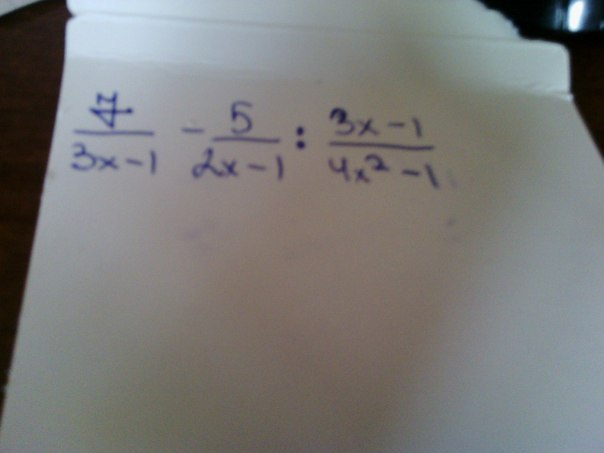 4/(3x-1) - 5/(2x-1) : (3x-1)/(4x²-1)